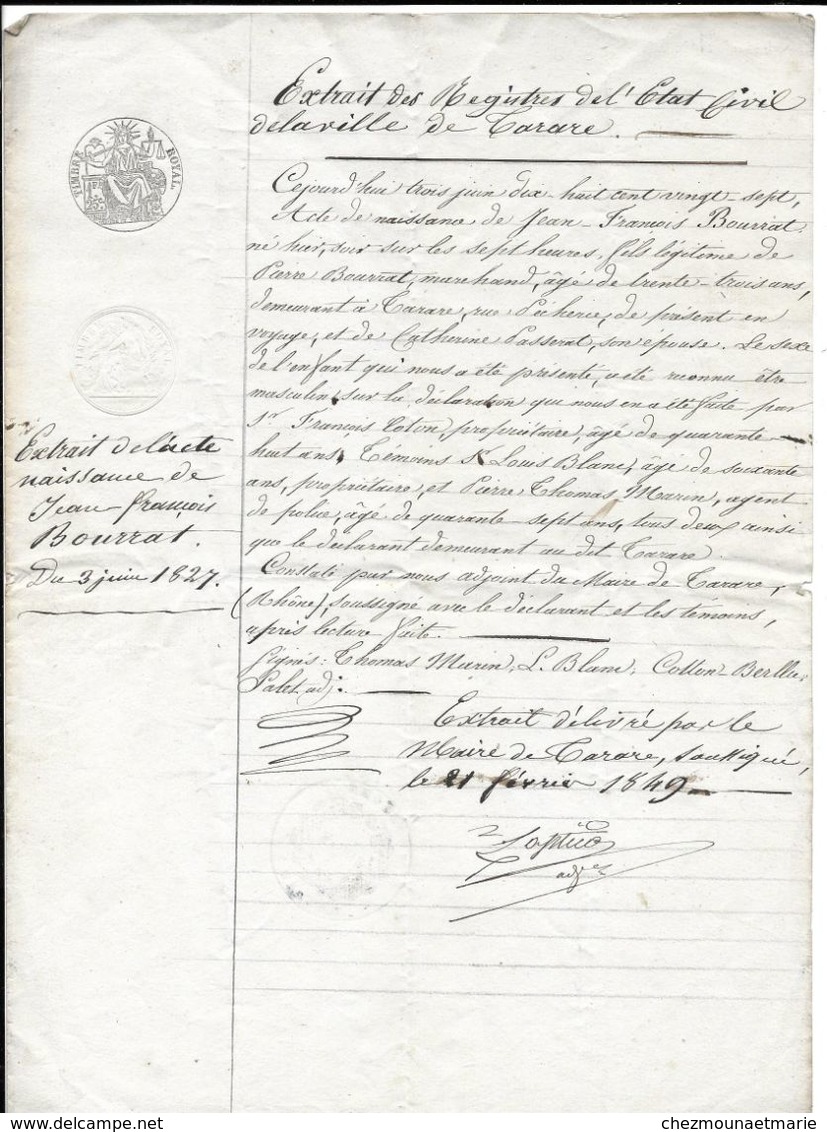 TIMBRE ROYAL
Extrait des Registres de l'Etat Civil
de la ville de Tarare.
Cejourd'hui trois juin dix-huit cent vingt-sept,
Acte de naissance de Jean-François Bourrat,
né hier, soir sur les sept heures, fils légitime de
Pierre Bourrat, marchand, âgé de trente-trois ans,
demeurant à Tarare, rue de présent en
voyage, et de Catherine Passerat, son épouse. Le sexe
de l'enfant qui nous a été présenté, a été reconnu être
masculin, sur la déclaration qui nous en a été faite par
Sr. François Coton, propriétaire, âgé de quarante-
huit ans, Témoins Sr. Louis Blanc, âgé de soixante
ans, propriétaire, et Pierre Thomas Marin, agent
de police, âgé de quarante-sept ans, tous deux ainsi
que le déclarant demeurant au dit Tarare.
Constaté par nous adjoint du Maire de Tarare,
(Rhône), soussigné avec le déclarant et les témoins,
après lecture faite.
Signés: Thomas Marin, L. Blanc, Cotton-
adj:
Extrait de l'acte
naissance de
Jean-françois
Bourrat.
Du 3 juin 1827.
Extrait délivré par le
Maire de Tarare, soussigné,
le 21 février 1849
adj
delcampe.net
chezmounaetmarie